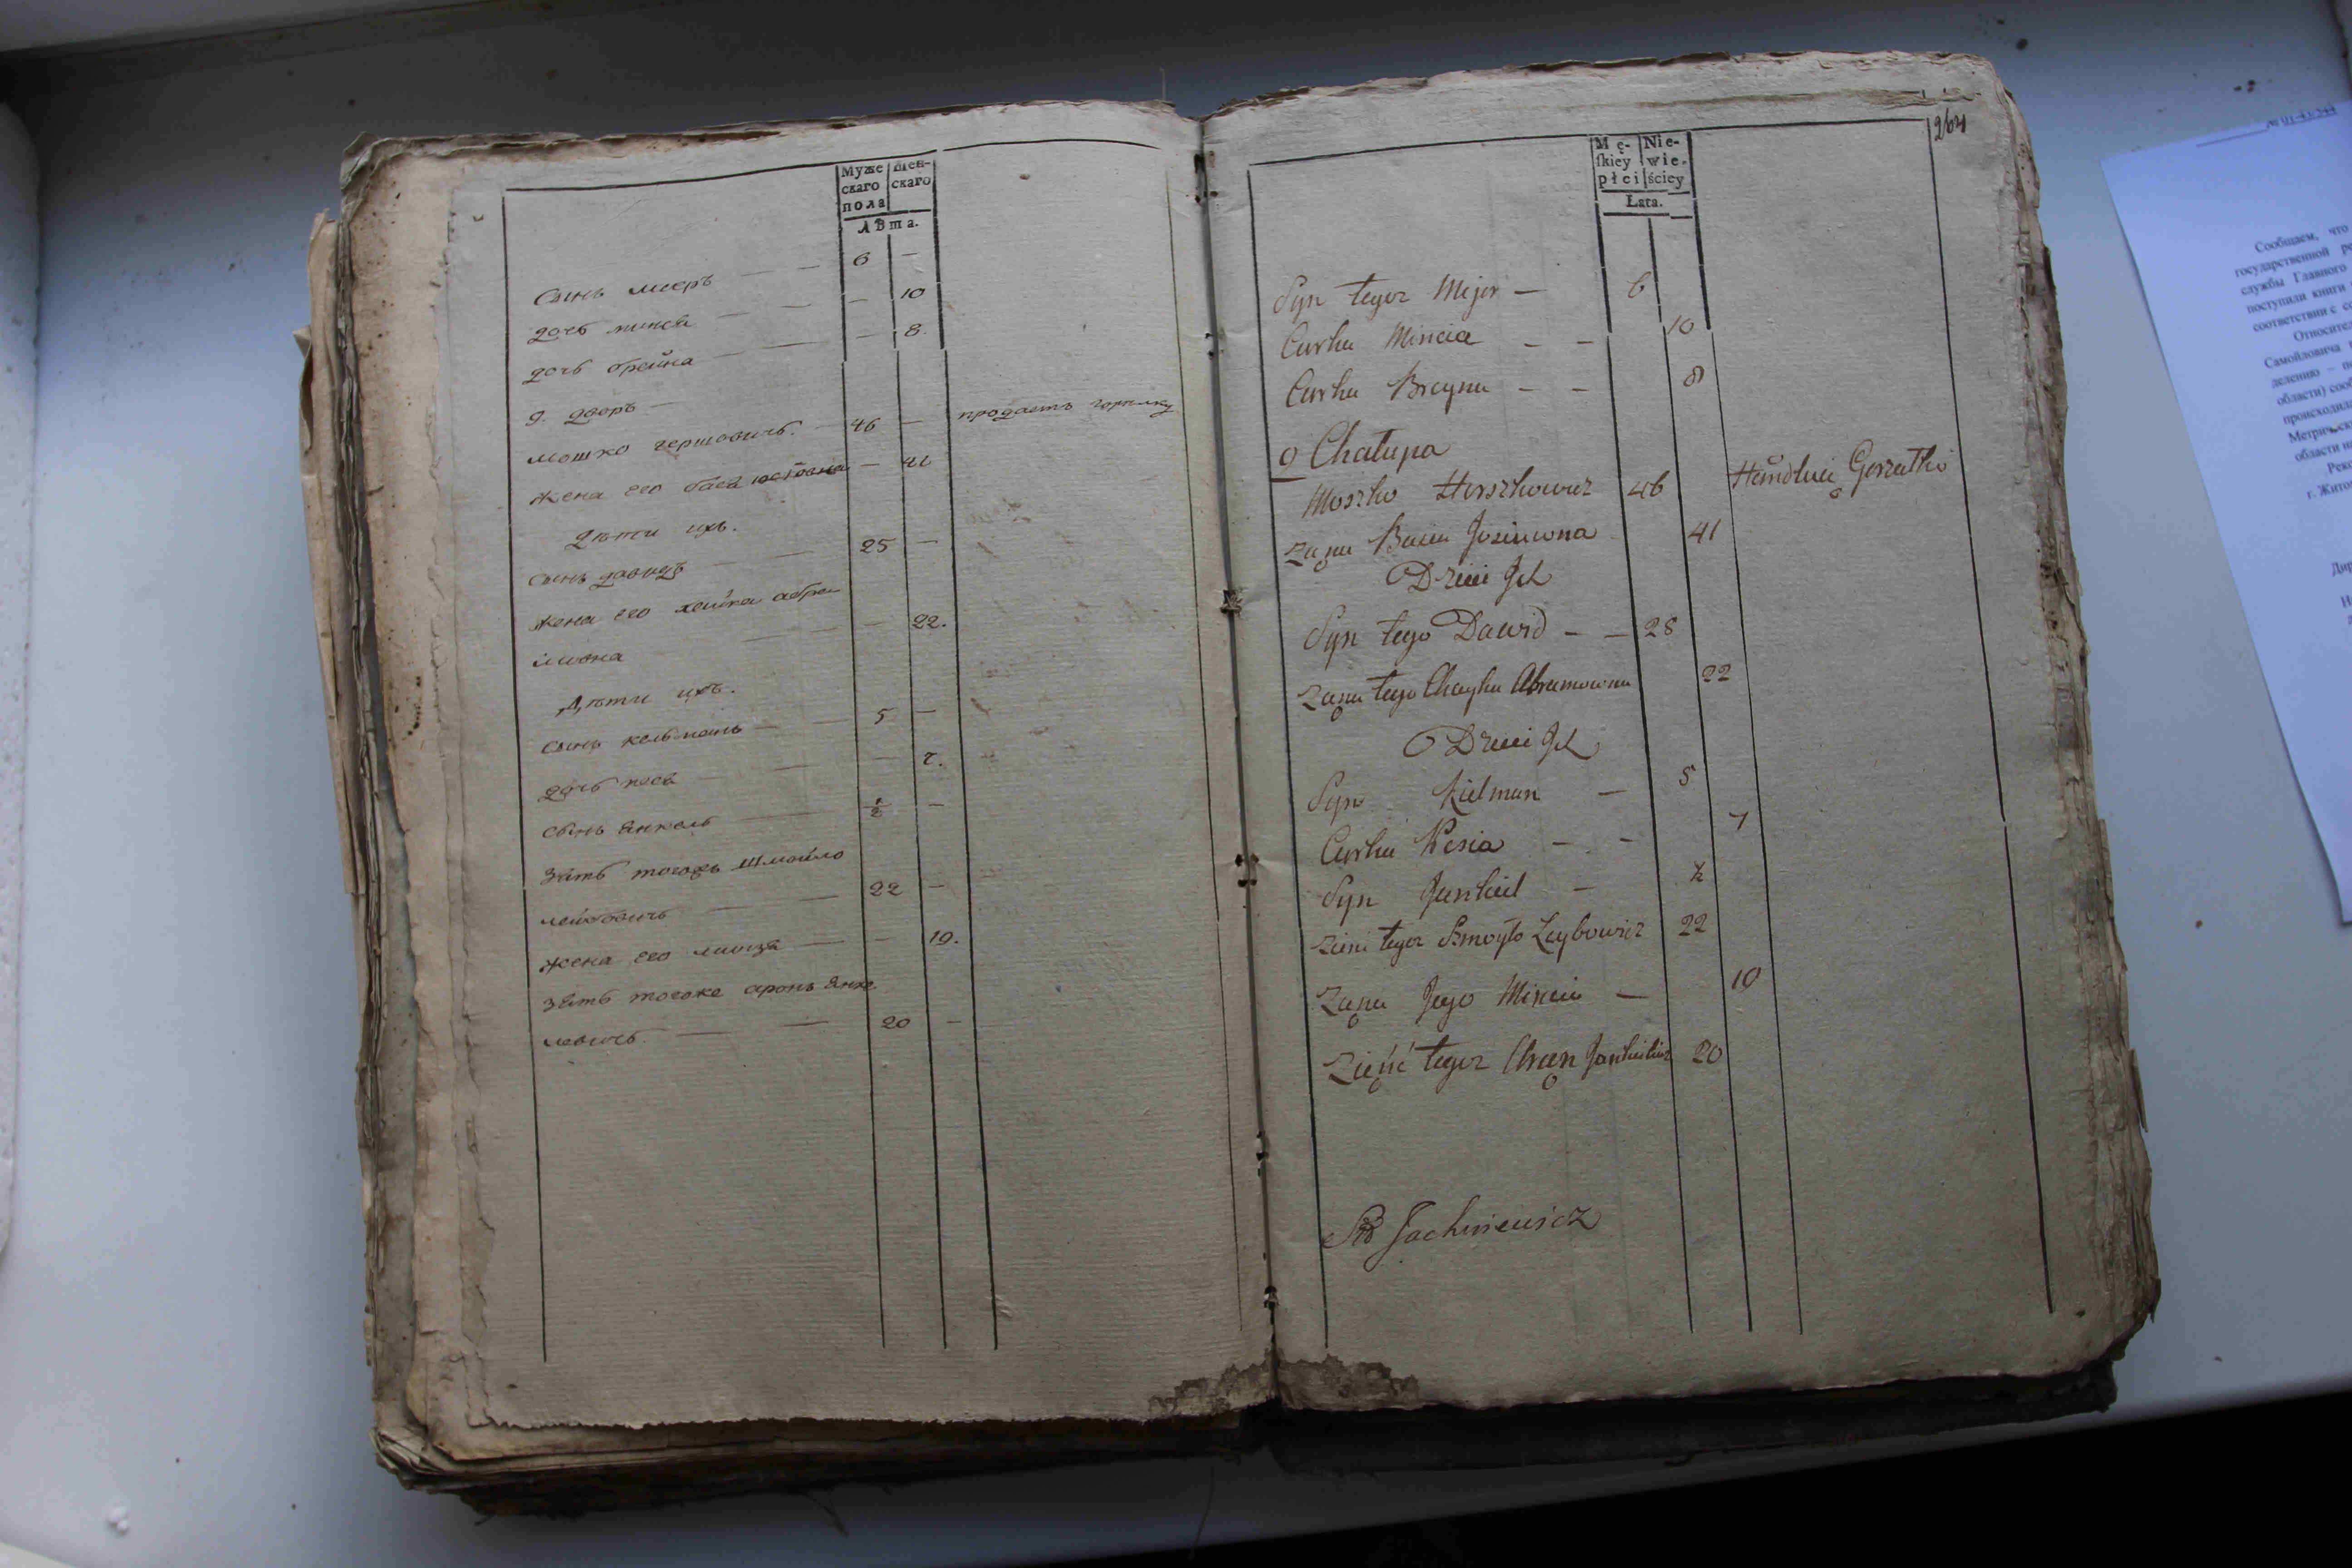 Муже
скаго
пола
Жен-
скаго
лѣта.
сынъ мееръ — — 6 —
дочь минся — — — 10
дочь брейна — — — 8.
9. дворъ —
мошко гершовичъ. — 46 — продаетъ горилку
жена его бася иосіовна — 41
дѣти ихъ.
сынъ давидъ — — 25 —
жена его хейка абра
мовна — — — 22.
дѣти ихъ.
сынъ кельманъ — — 5 —
дочь песя — — — 7.
сынъ Янкель — — ½ —
зять тогожъ шмойло
лейбовичъ — — 22 —
жена его минця — — 19.
зять тогоже аронъ Янке
левичъ. — — 20 —
264
Mę-
ſkiey
płci
Nie-
wie-
ściey
Lata.
Syn tegoz Mejer — 6
Curka Mincia — — 10
Curka Brayna — — 8
9 Chałupa
Moszko Herszkowicz 46 Hendluie Gorzałko
Zona Basia Josiowna 41
Dzieci Jch
Syn tego Dawid — — 28
Zona tego Chayka Abramowna 22
Dzieci Jch
Syn Kielman — 5
Curka Pesia — — 7
Syn Jankiel — ½
Zienć tegoz Szmoyło Leybowicz 22
Zona Jego Mincia — 10
Zienć tegoz Aron Jankielewicz 20
Jachniewicz
№ 01-43/544
Сообщаем, что
государственной
службы Главного
поступили книги
соответствии с
Самойловича
области)
происходила
области
г.